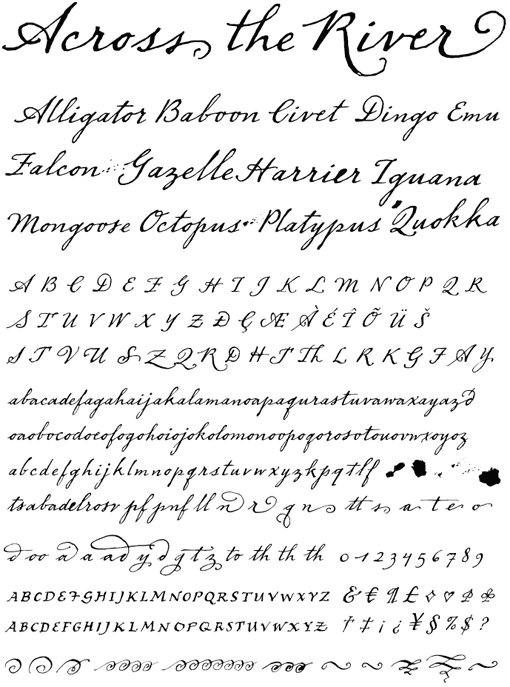 Across the River
Alligator Baboon Civet Dingo Emu
Falcon Gazelle Harrier Iguana
Mongoose Octopus Platypus Quokka
A B C D E F G H I J K L M N O P Q R
S T U V W X Y Z Đ Ç Æ À É Î Õ Ü Š
S T V U S Z Q R D H T Th L R K G F A Y
abacadefagahaijakalamanoapaqurastuvawaxayazd
oaobocodoeofogohoiojokolomonoopoqorosotouovwxoyoz
abcdefghijklmnopqrstuvwxyzkpqtlf
tsabadelrosv pf pnf ll n r q n s tt s a t e o
d oo a a ad y d g t z to th th th 0123456789
ABCDEFGHIJKLMNOPQRSTUVWXYZ & € ¶ £
ABCDEFGHIJKLMNOPQRSTUVWXYZ † ‡ ¡ ¿ ¥ § % $ ?